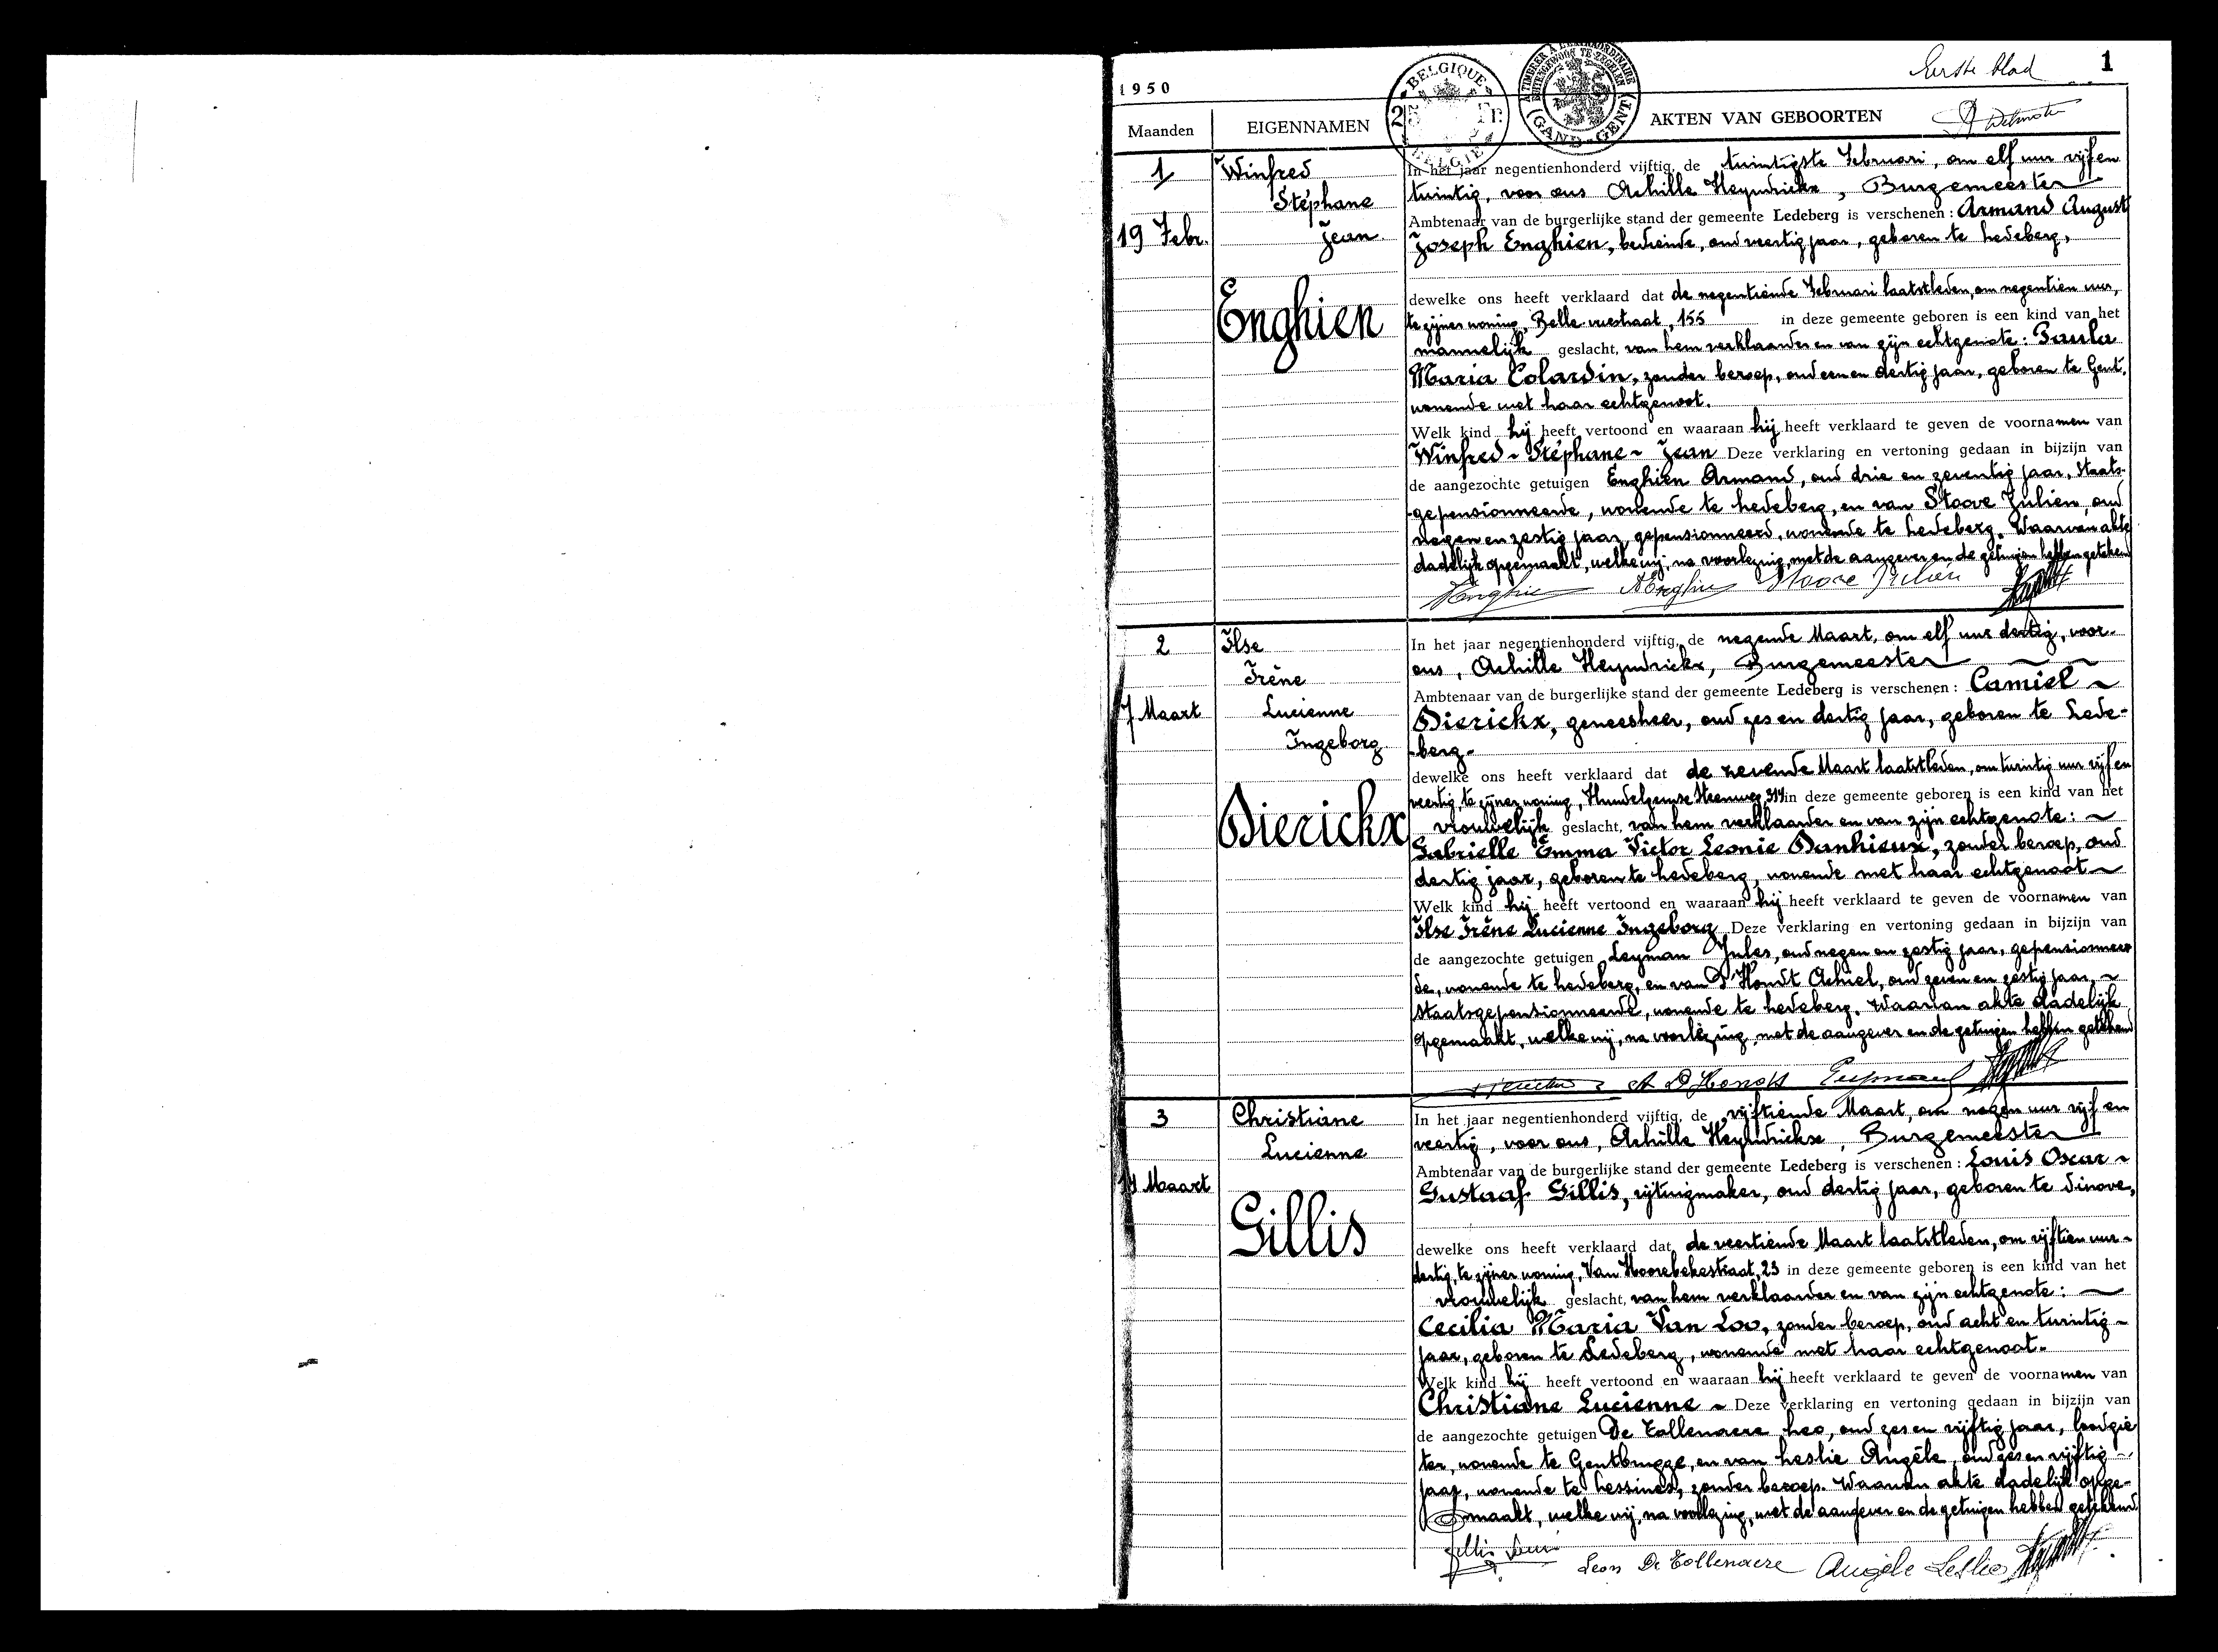 Eerste blad 1
1950
BELGIQUE
BELGIË
GAND - GENT
Maanden EIGENNAMEN AKTEN VAN GEBOORTEN
1
19 Febr.
Winfred
Stéphane
Jean
Enghien
In het jaar negentienhonderd vijftig, de twintigste Februari, om elf uur vijf en
twintig, voor ons Achille Heyndrickx, Burgemeester
Ambtenaar van de burgerlijke stand der gemeente Ledeberg is verschenen: Armand August
Joseph Enghien, bediende, oud veertig jaar, geboren te Ledeberg,
dewelke ons heeft verklaard dat de negentiende Februari laatstleden, om negentien uur,
te zijner woning, Belle-vuestraat, 155 in deze gemeente geboren is een kind van het
mannelijk geslacht, van hem verklaarder en van zijn echtgenote: Paula
Maria Colardin, zonder beroep, oud een en dertig jaar, geboren te Gent,
wonende met haar echtgenoot.
Welk kind hij heeft vertoond en waaraan hij heeft verklaard te geven de voornamen van
Winfred ~ Stéphane ~ Jean Deze verklaring en vertoning gedaan in bijzijn van
de aangezochte getuigen Enghien Armand, oud drie en zeventig jaar, Staats-
gepensionneerde, wonende te Ledeberg, en van Stoove Julien, oud
negen en zestig jaar, gepensionneerd, wonende te Ledeberg. Waarvan akte
dadelijk opgemaakt, welke wij, na voorlezing, met de aangever en de getuigen hebben getekend
AEnghien Stoove Julien
2
7 Maart
Ilse
Irène
Lucienne
Ingeborg
Dierickx
In het jaar negentienhonderd vijftig, de negende Maart, om elf uur dertig, voor
ons, Achille Heyndrickx, Burgemeester
Ambtenaar van de burgerlijke stand der gemeente Ledeberg is verschenen: Camiel ~
Dierickx, geneesheer, oud zes en dertig jaar, geboren te Lede-
-berg-
dewelke ons heeft verklaard dat de zevende Maart laatstleden, om twintig uur vijf en
veertig, te zijner woning, Hundelgemse Steenweg, 314 in deze gemeente geboren is een kind van het
vrouwelijk geslacht, van hem verklaarder en van zijn echtgenote: ~
Gabrielle Emma Victor Leonie Danhieux, zonder beroep, oud
dertig jaar, geboren te Ledeberg, wonende met haar echtgenoot ~
Welk kind hij heeft vertoond en waaraan hij heeft verklaard te geven de voornamen van
Ilse Irène Lucienne Ingeborg Deze verklaring en vertoning gedaan in bijzijn van
de aangezochte getuigen Leyman Jules, oud negen en zestig jaar, gepensionneer
de, wonende te Ledeberg, en van D'Hondt Achiel, oud zeven en zestig jaar, ~
Staatsgepensionneerde, wonende te Ledeberg. Waarvan akte dadelijk
opgemaakt, welke wij, na voorlezing, met de aangever en de getuigen hebben getekend
A D'Hondt
3
14 Maart
Christiane
Lucienne
Gillis
In het jaar negentienhonderd vijftig, de vijftiende Maart, om negen uur vijf en
veertig, voor ons, Achille Heyndrickx, Burgemeester
Ambtenaar van de burgerlijke stand der gemeente Ledeberg is verschenen: Louis Oscar ~
Gustaaf Gillis, rijtuigmaker, oud dertig jaar, geboren te Ninove,
dewelke ons heeft verklaard dat de veertiende Maart laatstleden, om vijftien uur -
dertig, te zijner woning, Van Hoorebekestraat, 23 in deze gemeente geboren is een kind van het
vrouwelijk geslacht, van hem verklaarder en van zijn echtgenote: ~
Cecilia Maria Van Loo, zonder beroep, oud acht en twintig ~
jaar, geboren te Ledeberg, wonende met haar echtgenoot.
Welk kind hij heeft vertoond en waaraan hij heeft verklaard te geven de voornamen van
Christiane Lucienne ~ Deze verklaring en vertoning gedaan in bijzijn van
de aangezochte getuigen De Tollenaere Leo, oud zes en vijftig jaar, loodgie
ter, wonende te Gentbrugge, en van Leslie Angèle, oud zes en vijftig ~
jaar, wonende te Lessines, zonder beroep. Waarvan akte dadelijk opge-
maakt, welke wij, na voorlezing, met de aangever en de getuigen hebben getekend
Gillis Louis Leon De Tollenaere Angèle Leslie